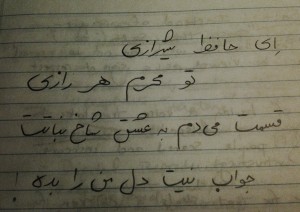 ای حافظ شیرازی
تو محرم هر رازی
قسمت می‌دم به عشق شاخ نباتت
جواب نیت دل من را بده !